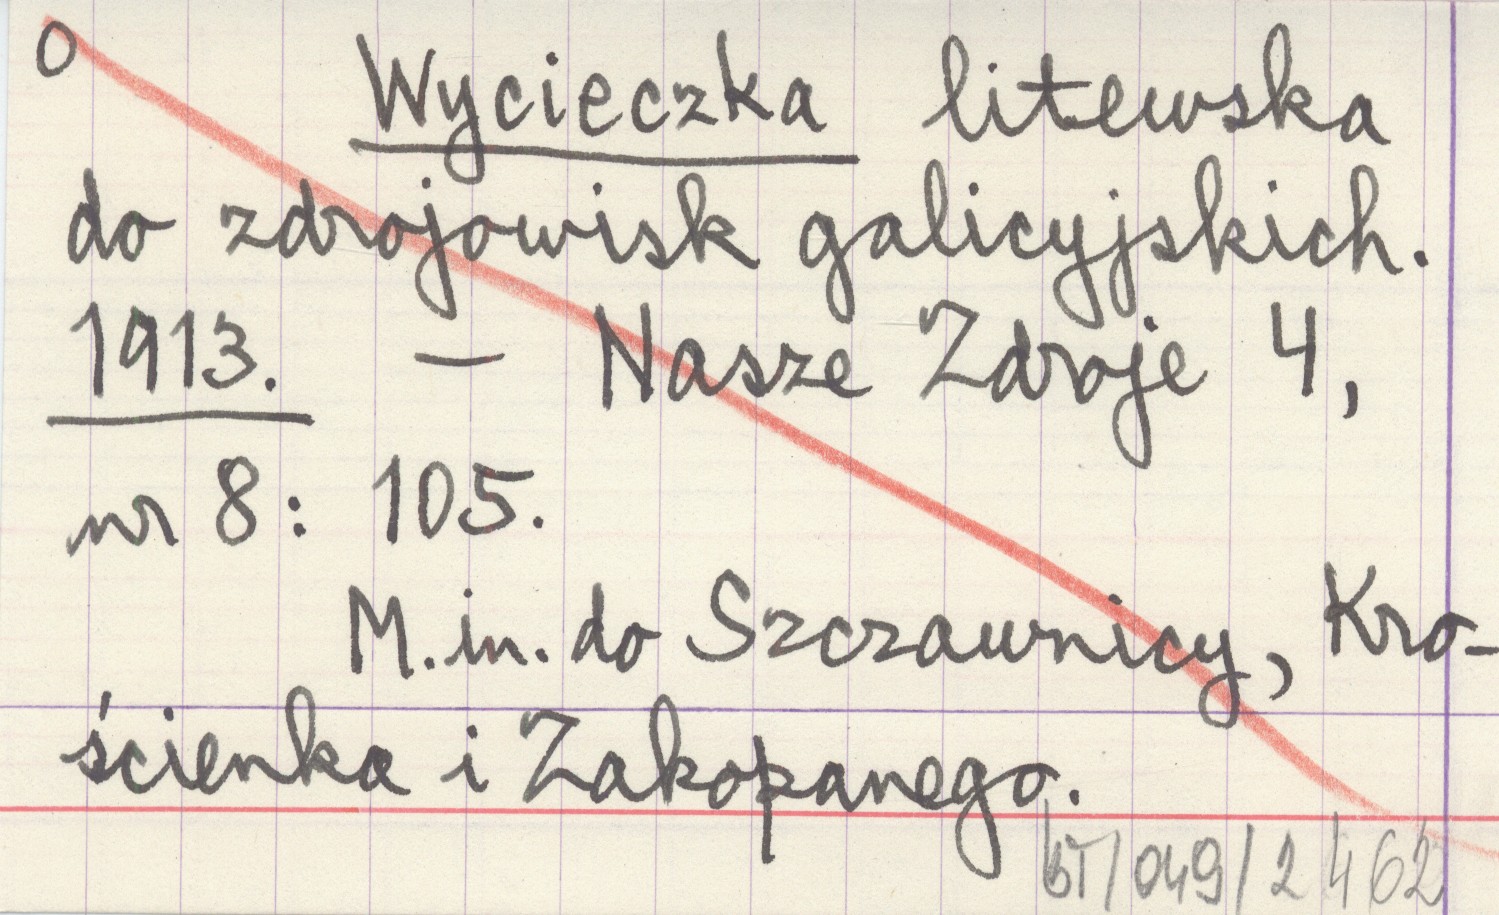 o Wycieczka litewska
do zdrojowisk galicyjskich.
1913. — Nasze Zdroje 4,
nr 8: 105.
M. in. do Szczawnicy, Kro-
ścienka i Zakopanego.
bT/049/2462